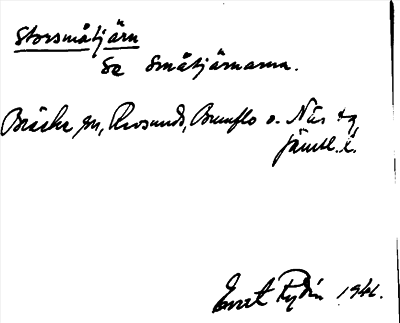 Storsmåtjärn
Se Småtjärnarna.
Bräcke sn, Revsunds, Brunflo o. Näs tg,
Jämtl. l.
Ernst Rydin 1941.